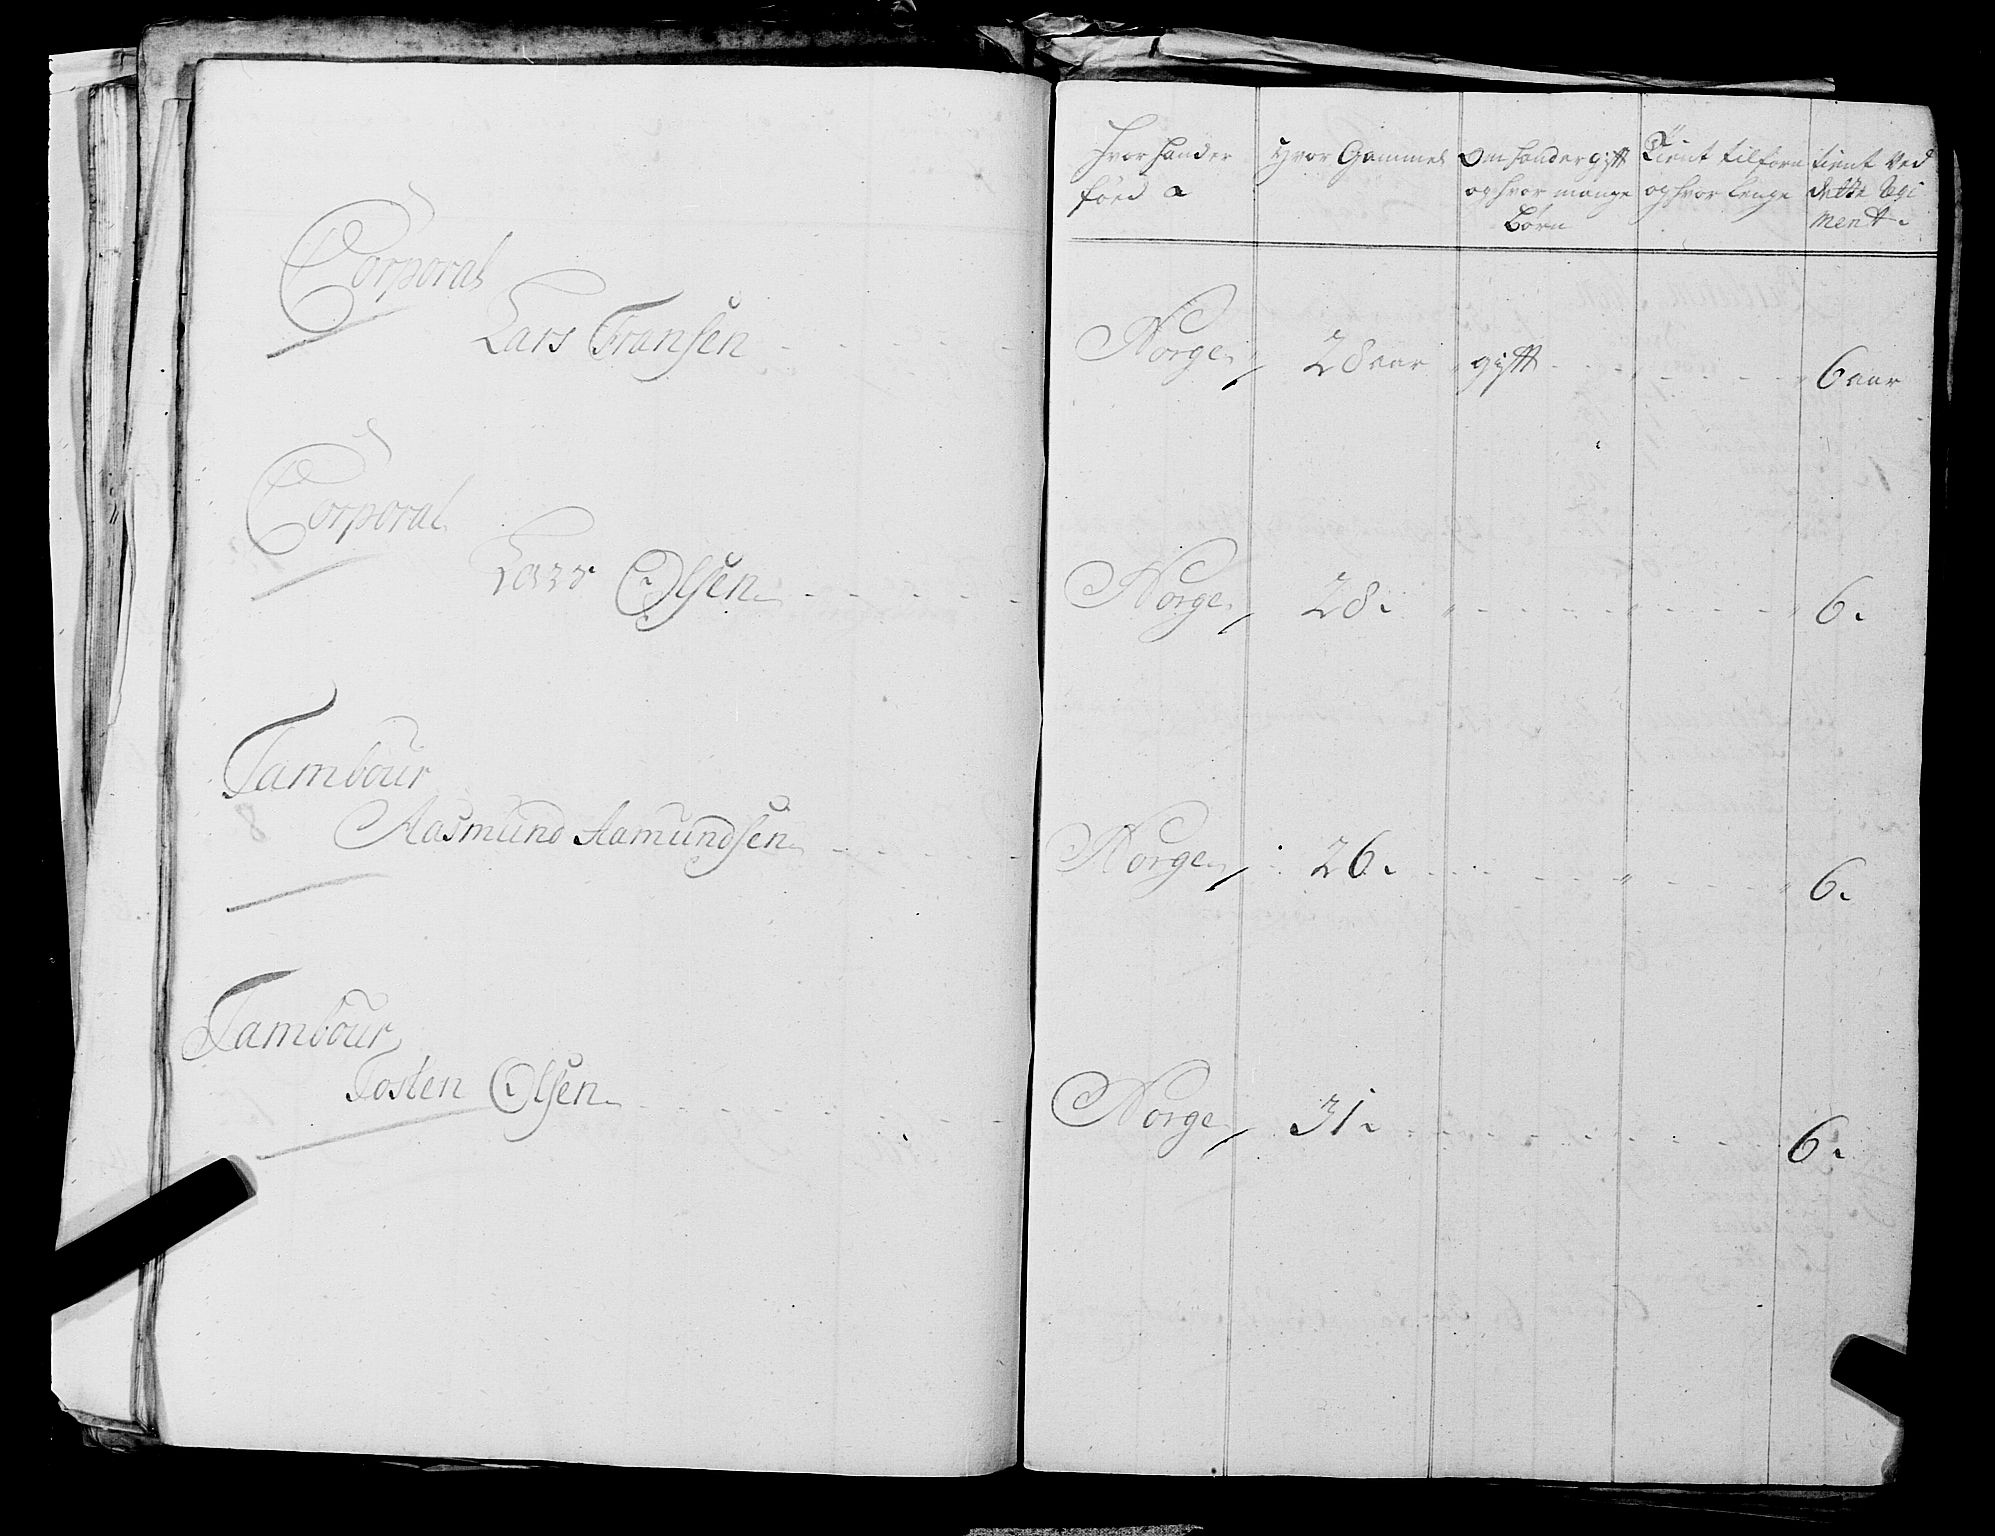 Corporal
Lars Fransen
Corporal
Lars Olsen
Tambour
Aasmund Aamundsen
Tambour
Tosten Olsen
hvor hand er
föed
Hvor Gammel
Om hand er gift
og hvor mange
Börn
Tient tilforn
og hvor lenge
tient ved
dette Regi
ment.
Norge 28 aar gift 6 aar
Norge 28. 6.
Norge 26. 6.
Norge 31. 6.